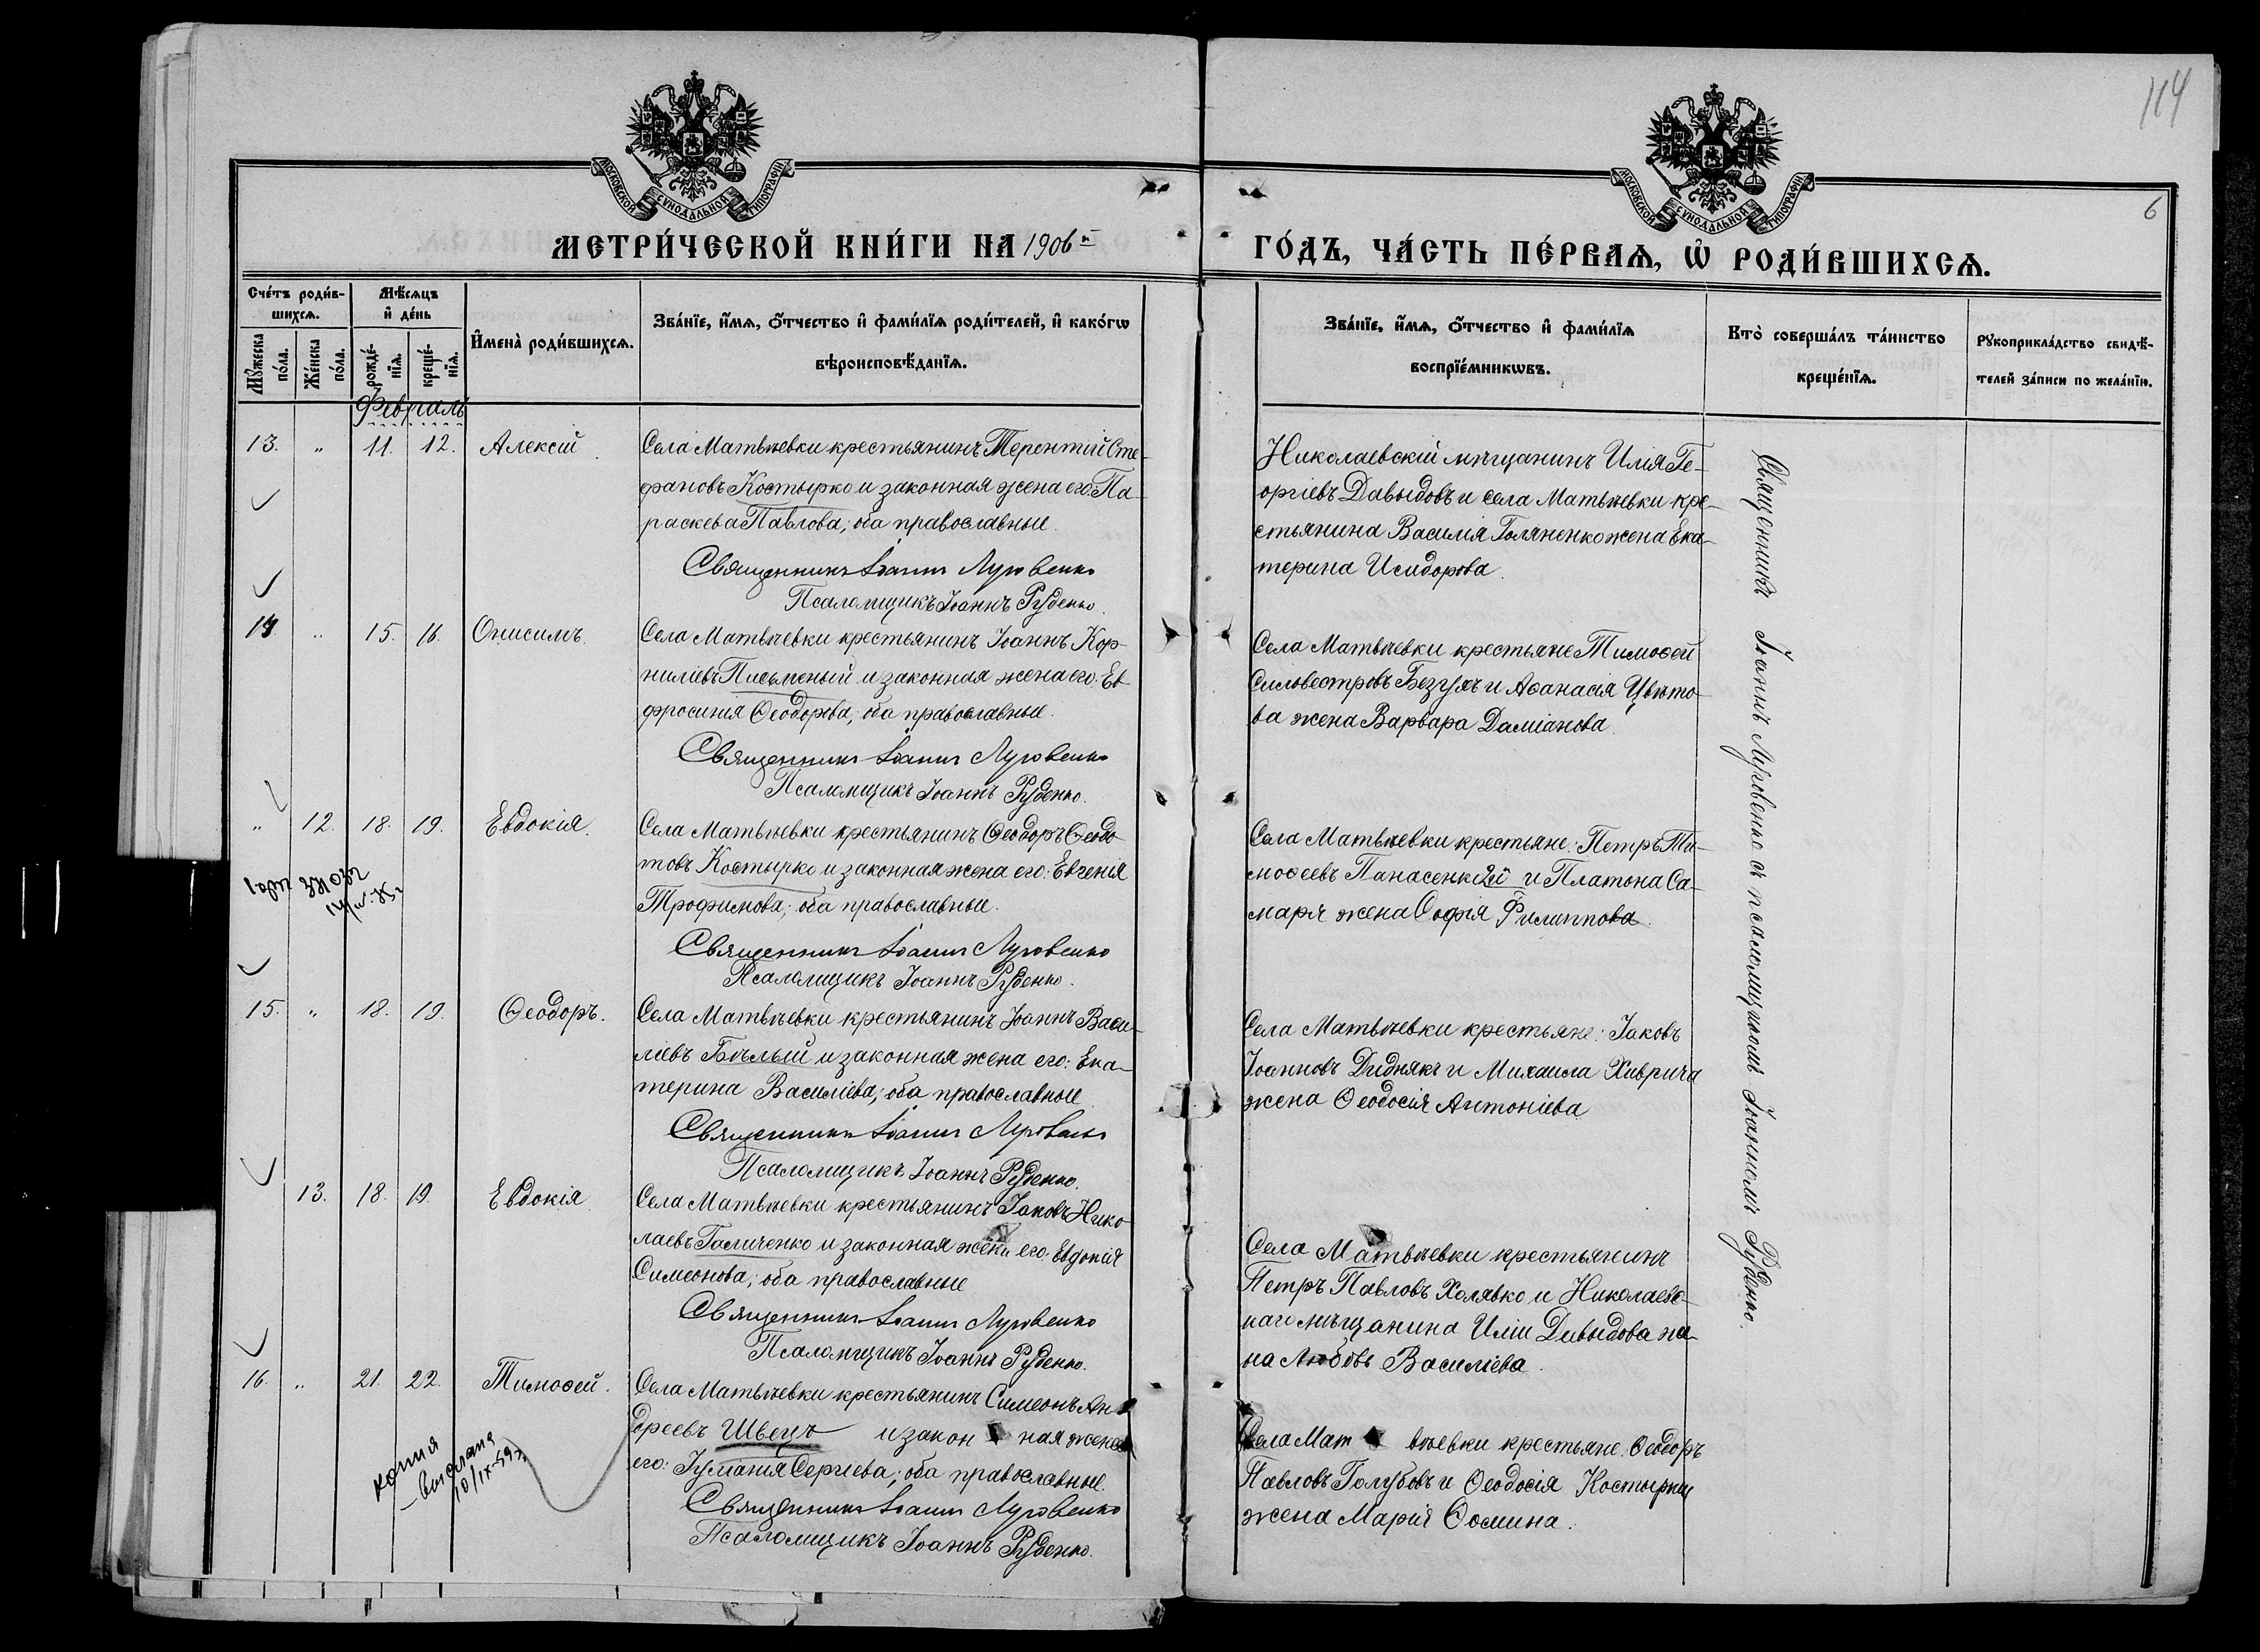 114
6
МОСКОВСКОЙ СѴНОДАЛЬНОЙ ТИПОГРАФІИ
МОСКОВСКОЙ СѴНОДАЛЬНОЙ ТИПОГРАФІИ
МЕТРИ́ЧЕСКОЙ КНИ́ГИ НА 1906й
ГО́ДЪ, ЧА́СТЬ ПЕ́РВАѦ, Ѡ҆ РОДИ́ВШИХСѦ.
Сче́тъ роди́в-
шихсѧ.
Мꙋ́жеска по́ла.
Же́нска по́ла.
Мѣ́сѧцъ
и҆ де́нь
рожде́-
нїѧ.
креще́-
нїѧ.
И҆мена̀ роди́вшихсѧ.
Зва́нїе, и҆́мѧ, ѻ҆́тчество и҆ фами́лїѧ роди́телей, и҆ како́гѡ
вѣроисповѣ́данїѧ.
Зва́нїе, и҆́мѧ, ѻ҆́тчество и҆ фами́лїѧ
воспрїе́мникѡвъ.
Кто̀ соверша́лъ та́инство
креще́нїѧ.
Рꙋкоприкла́дство свидѣ́-
телей за́писи по жела́нїю.
Февраль
13. " 11. 12. Алексій.
Села Матвѣевки крестьянинъ Терентій Сте-
фановъ Костырко и законная жена его: Па-
раскева Павлова; оба православные.
Священникъ Іоаннъ Луговенко
Псаломщикъ Іоаннъ Руденко.
Николаевскій мѣщанинъ Илія Ге-
оргіевъ Давыдовъ и села Матвѣевки кре-
стьянина Василія Голяненко жена Ека-
терина Исидорова.
14 " 15. 16. Онисимъ.
Села Матвѣевки крестьянинъ Іоаннъ Кор-
ниліевъ Письменый и законная жена его: Ев-
фросинія Ѳеодорова; оба православные.
Священникъ Іоаннъ Луговенко
Псаломщикъ Іоаннъ Руденко.
Села Матвѣевки крестьяне Тимоѳей
Сильвестровъ Безгулъ и Аѳанасія Цвѣто-
ва жена Варвара Даміанова.
" 12. 18. 19. Евдокія.
Села Матвѣевки крестьянинъ Ѳеодоръ Ѳеодо-
товъ Костырко и законная жена его: Евгенія
Трофимова; оба православные.
Священникъ Іоаннъ Луговенко
Псаломщикъ Іоаннъ Руденко.
Села Матвѣевки крестьяне: Петръ Ти-
моѳеевъ Панасенко 2й и Платона Са-
маря жена Софія Филиппова.
15. " 18. 19. Ѳеодоръ.
Села Матвѣевки крестьянинъ Іоаннъ Васи-
ліевъ Бѣлый и законная жена его: Ека-
терина Василіева; оба православные
Священникъ Іоаннъ Луговенко
Псаломщикъ Іоаннъ Руденко.
Села Матвѣевки крестьяне: Іаковъ
Іоанновъ Диднякъ и Михаила Хиврича
жена Ѳеодосія Антоніева
13. 18. 19. Евдокія.
Села Матвѣевки крестьянинъ Іаковъ Нико-
лаевъ Галиченко и законная жена его: Евдокія
Симеонова; оба православные
Священникъ Іоаннъ Луговенко
Псаломщикъ Іоаннъ Руденко.
Села Матвѣевки крестьянинъ
Петръ Павловъ Холявко и Николаевс-
каго мѣщанина Иліи Давыдова же-
на Любовь Василіева.
16. " 21. 22. Тимоѳей.
Села Матвѣевки крестьянинъ Симеонъ Ан-
дреевъ Швецъ и законная жена
его: Іуліанія Сергіева; оба православные.
Священникъ Іоаннъ Луговенко
Псаломщикъ Іоаннъ Руденко.
Села Матвѣевки крестьяне. Ѳеодоръ
Павловъ Голубовъ и Ѳеодосія Костырки
жена Марія Ѳомина.
копия
выслана
10/IX-59г
Священникъ Іоаннъ Луговенко съ псаломщикомъ Іоанномъ Руденко.